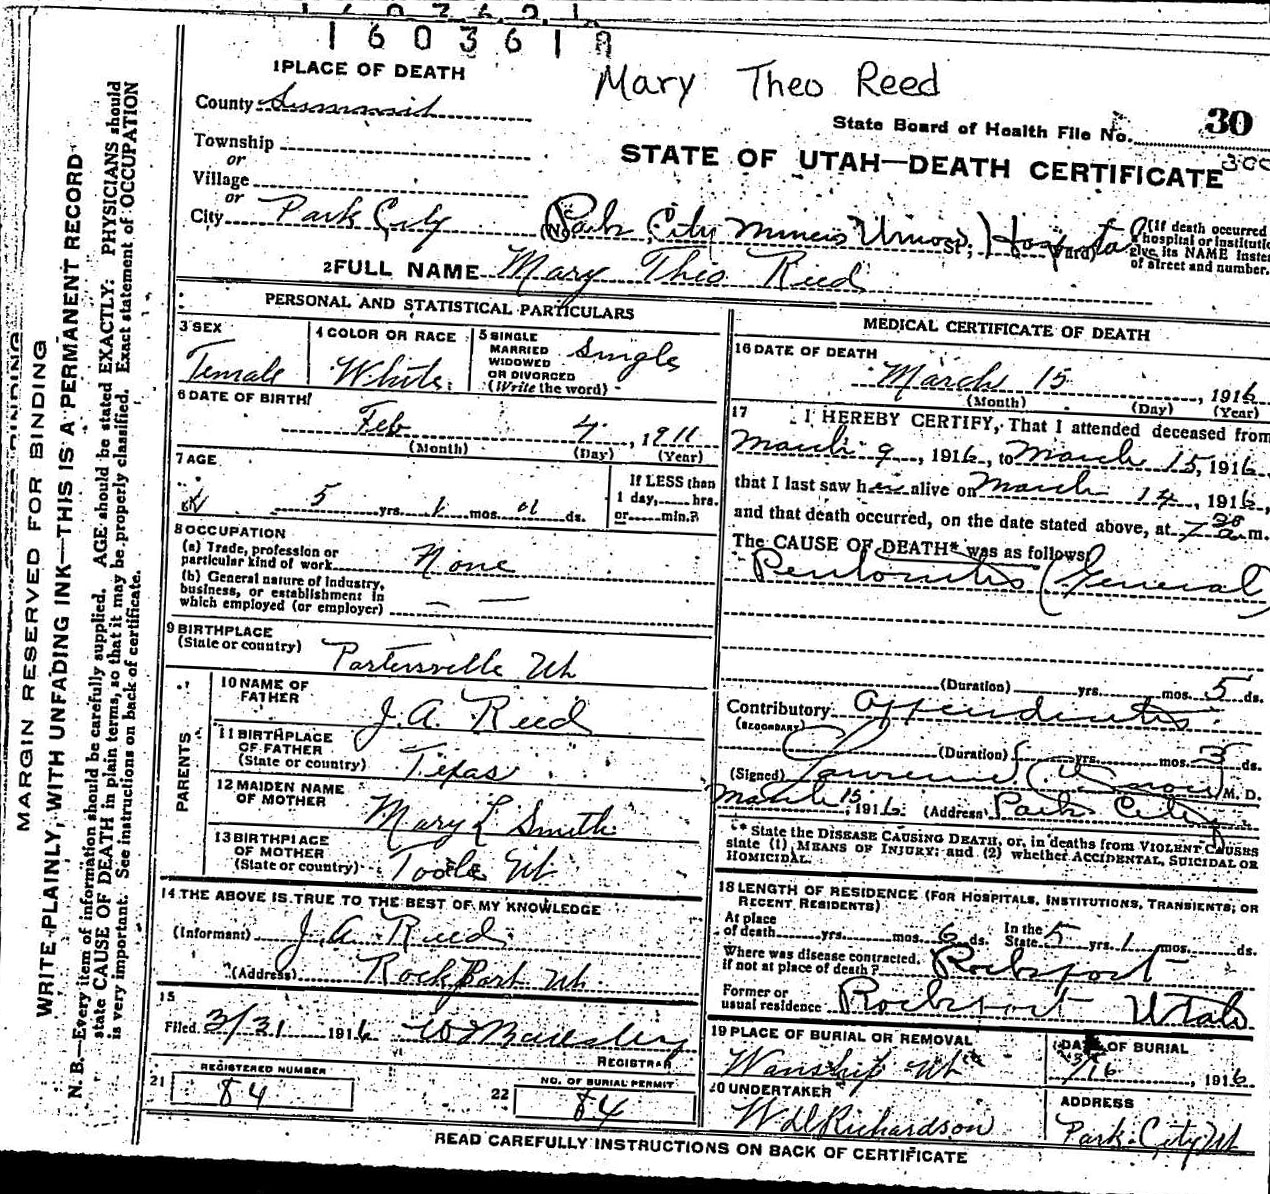 1603610
Mary Theo Reed
1 PLACE OF DEATH
County Summit
State Board of Health File No. 30
Township
or
Village
or
STATE OF UTAH—DEATH CERTIFICATE
City Park City (No. Park City Miners Union St; Hospital Ward)
(If death occurred
hospital or institutio
give its NAME inste
of street and number.
2 FULL NAME Mary Theo Reed
PERSONAL AND STATISTICAL PARTICULARS
3 SEX
Female
4 COLOR OR RACE
White
5 SINGLE
MARRIED
WIDOWED
OR DIVORCED
(Write the word)
Single
6 DATE OF BIRTH
Feb 4, 1911
(Month) (Day) (Year)
7 AGE
5 yrs. 1 mos. 01 ds.
If LESS than
1 day, hrs.
or min.?
8 OCCUPATION
(a) Trade, profession or
particular kind of work None
(b) General nature of industry,
business, or establishment in
which employed (or employer) — —
9 BIRTHPLACE
(State or country) Portersville Ut
PARENTS
10 NAME OF
FATHER
J. A. Reed
11 BIRTHPLACE
OF FATHER
(State or country) Texas
12 MAIDEN NAME
OF MOTHER
Mary L Smith
13 BIRTHPLACE
OF MOTHER
(State or country) Tooele Ut
14 THE ABOVE IS TRUE TO THE BEST OF MY KNOWLEDGE
(Informant) J. A. Reed
(Address) Rock Port Ut.
15
Filed 3/21 1916
REGISTRAR
21
REGISTERED NUMBER
84
22
NO. OF BURIAL PERMIT
84
MEDICAL CERTIFICATE OF DEATH
16 DATE OF DEATH
March 15, 1916
(Month) (Day) (Year)
17 I HEREBY CERTIFY, That I attended deceased from
March 9, 1916, to March 15, 1916
that I last saw her alive on March 14, 1916,
and that death occurred, on the date stated above, at 7 a m.
The CAUSE OF DEATH* was as follows:
Peritonitis (General)
(Duration) yrs. mos. 5 ds.
Contributory Appendicitis
(SECONDARY)
(Duration) yrs. mos. 5 ds.
(Signed) Lawrence M. D.
March 15, 1916. (Address) Park City
* State the DISEASE CAUSING DEATH, or, in deaths from VIOLENT CAUSES
state (1) MEANS OF INJURY; and (2) whether ACCIDENTAL, SUICIDAL OR
HOMICIDAL.
18 LENGTH OF RESIDENCE (FOR HOSPITALS, INSTITUTIONS, TRANSIENTS, OR
RECENT RESIDENTS)
At place
of death yrs. mos. 6 ds. In the
State 5 yrs. 1 mos. ds.
Where was disease contracted,
if not at place of death? Rockport
Former or
usual residence Rockport Utah
19 PLACE OF BURIAL OR REMOVAL
Wanship Ut
DATE OF BURIAL
3/16, 1916
20 UNDERTAKER
W D Richardson
ADDRESS
Park City Ut
READ CAREFULLY INSTRUCTIONS ON BACK OF CERTIFICATE
MARGIN RESERVED FOR BINDING
WRITE PLAINLY, WITH UNFADING INK—THIS IS A PERMANENT RECORD
N. B.—Every item of information should be carefully supplied. AGE should be stated EXACTLY. PHYSICIANS should
state CAUSE OF DEATH in plain terms, so that it may be properly classified. Exact statement of OCCUPATION
is very important. See instructions on back of certificate.